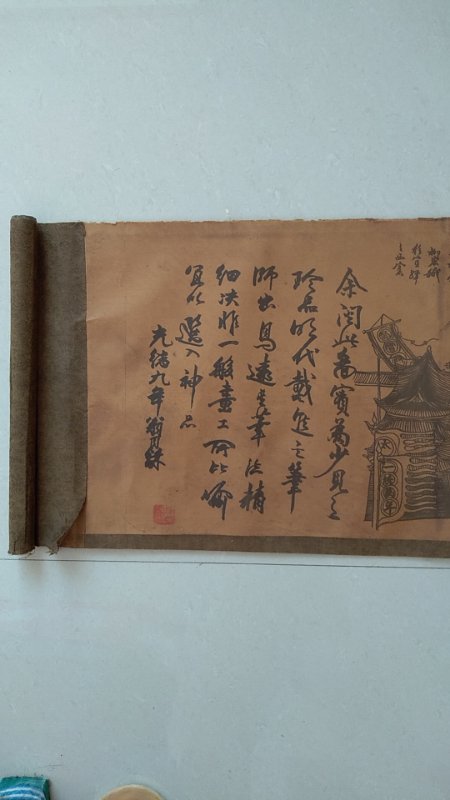 余阅此卷實為少見之
珍品明代戴進之筆
師出馬遠其筆法精
细决非一般畫工可比喻
冝以選入神品
光绪九年翁同龢